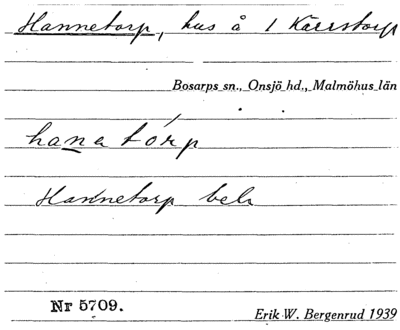 Hannetorp, hus å 1 Kärrstorp
Bosarps sn., Onsjö hd., Malmöhus län
hanatórp
Hannetorp bel.
Nr 5709.
Erik W. Bergenrud 1939